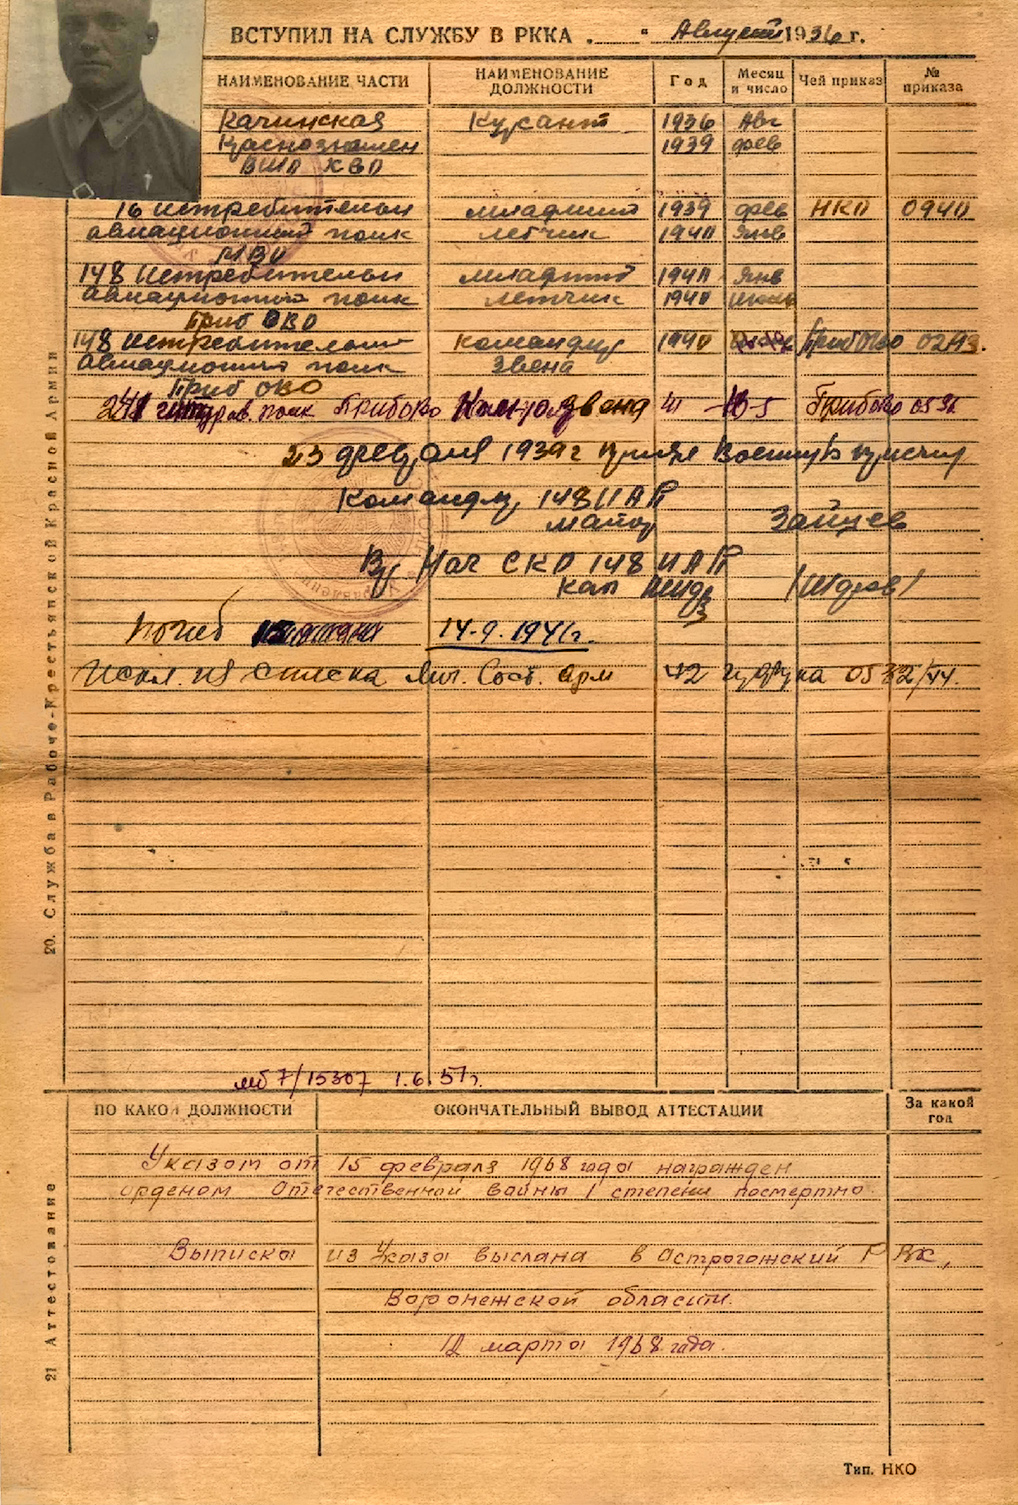 ВСТУПИЛ НА СЛУЖБУ В РККА . " Август 1936 г.
НАИМЕНОВАНИЕ ЧАСТИ НАИМЕНОВАНИЕ ДОЛЖНОСТИ Год Месяц и число Чей приказ № приказа
Качинская Курсант 1936 Авг
Краснознамен 1939 фев
ВШП ХВО
16 истребительный младший 1939 фев НКО 0940
авиационный полк летчик 1940 янв
МВО
148 Истребительн младший 1940 янв
авиационный полк летчик 1940
Приб ОВО
148 истребительный командир 1940 ПрибОВО
авиационный полк звена
Приб ОВО
полк ПрибОво звена 41 ПрибОво
23 февраля 1939 г принял Военную присягу
Командир 148 ИАП
майор Зайцев
Вр Нач СКО 148 ИАП
кап
Погиб 14-9-1941г.
Искл. из списка Сост. арм 42
7/15307 1.6.57г.
20. Служба в Рабоче-Крестьянской Красной Армии
ПО КАКОЙ ДОЛЖНОСТИ ОКОНЧАТЕЛЬНЫЙ ВЫВОД АТТЕСТАЦИИ За какой год
Указом от 15 февраля 1968 года награжден
орденом Отечественной войны I степени посмертно
Выписка из Указа выслана в Острогожский РВК,
Воронежской области.
12 марта 1968 года.
21 Аттестование
Тип. НКО